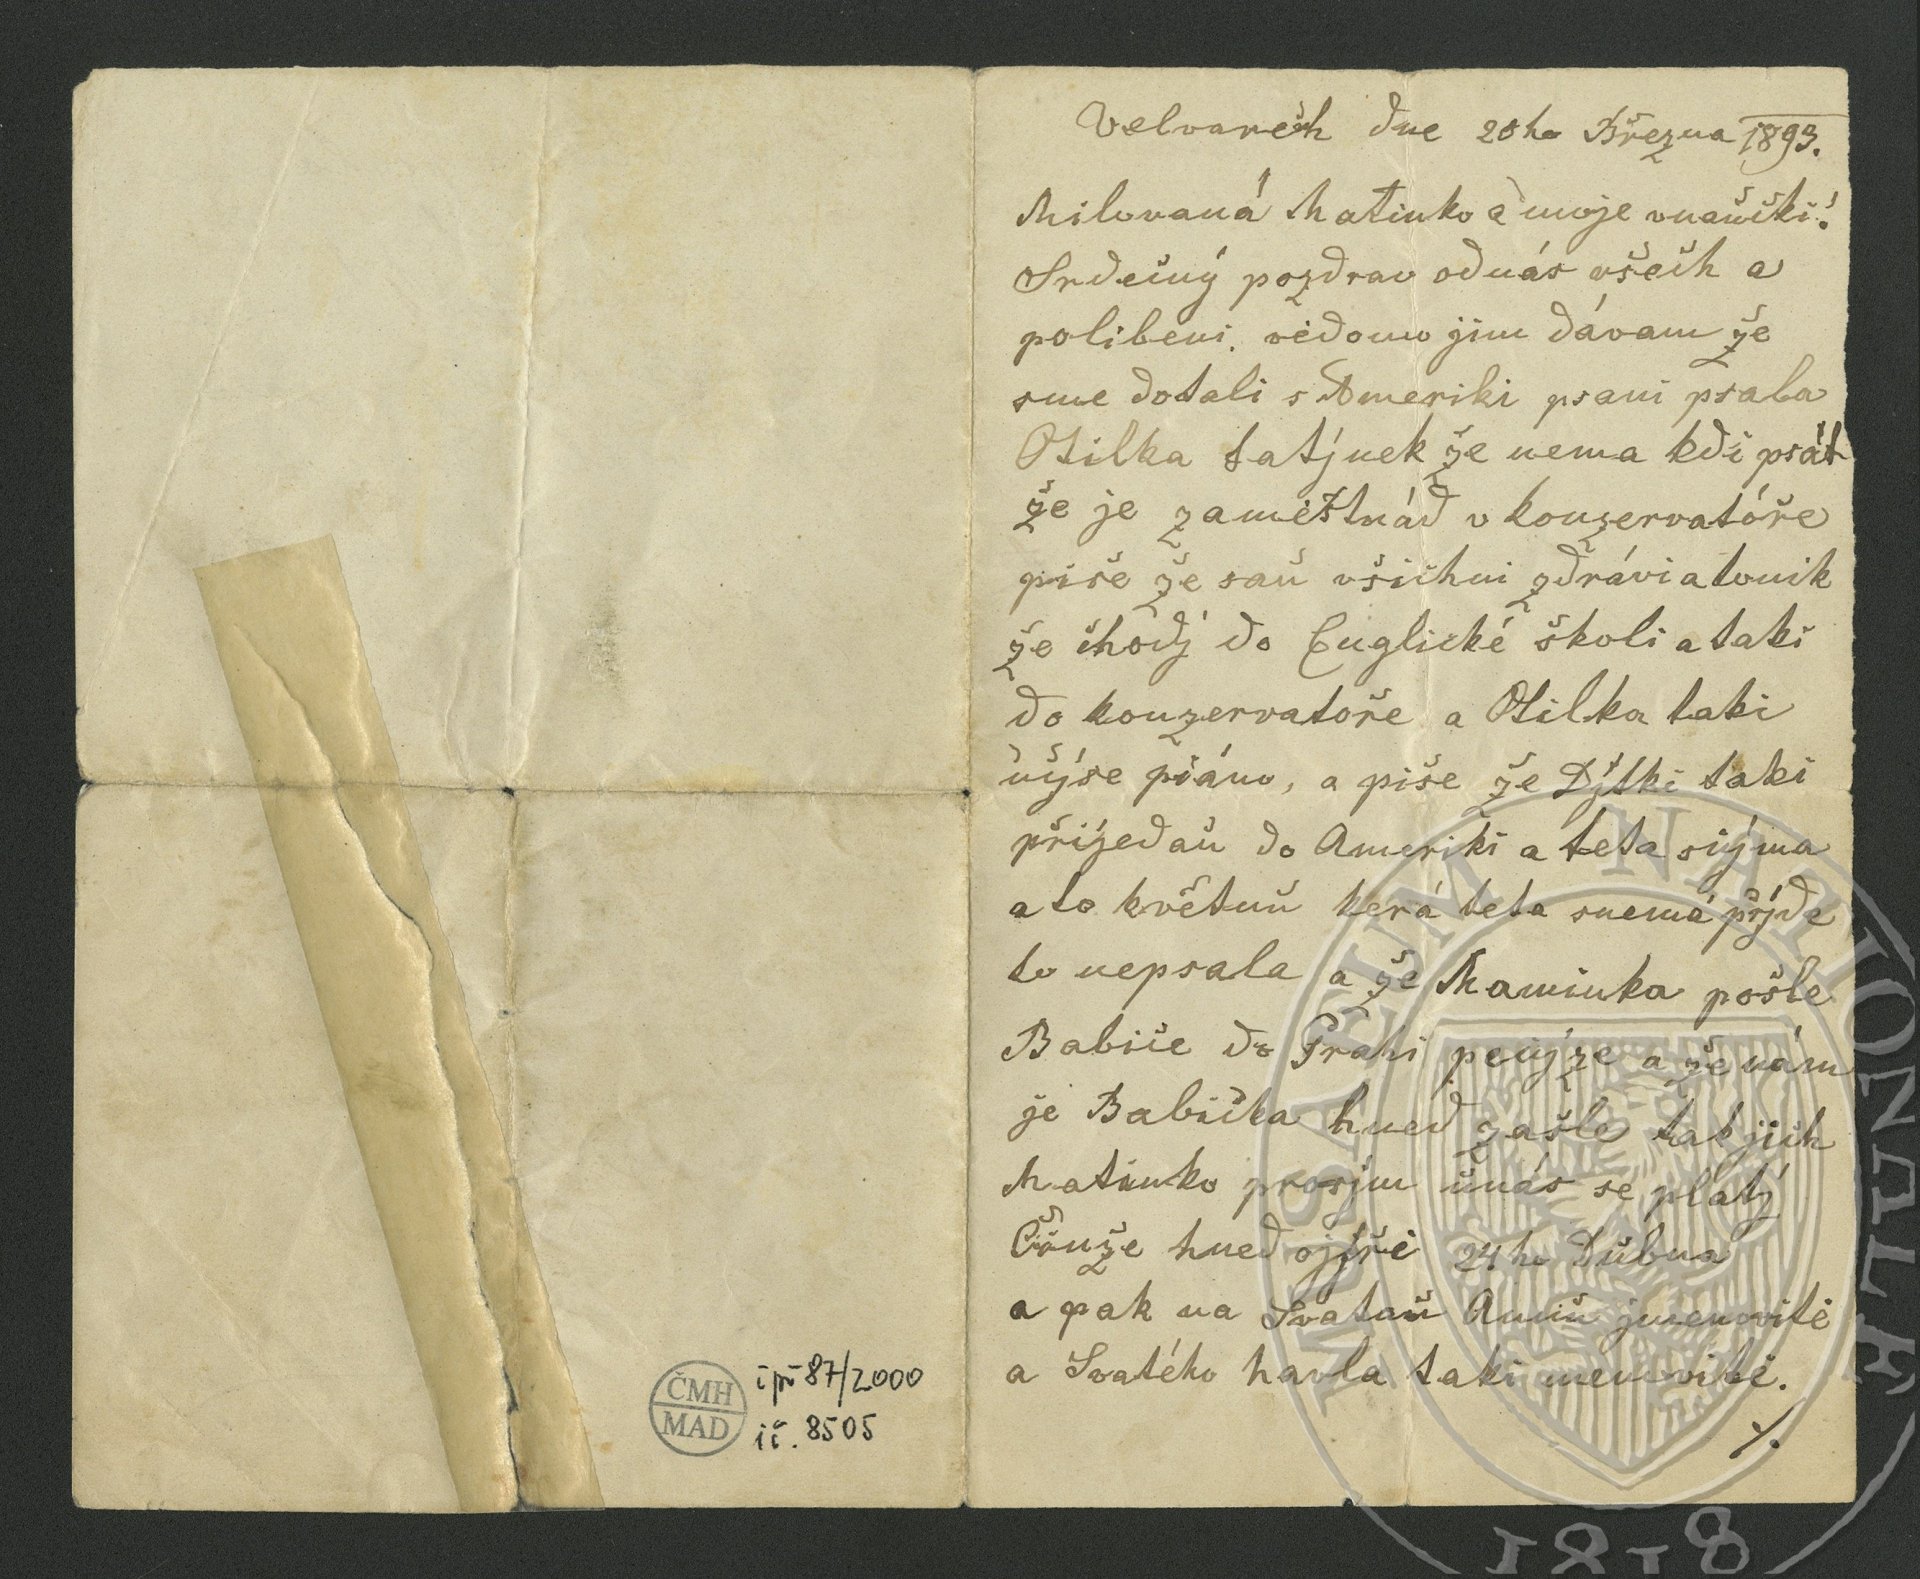 Velvarech dne 20ho Března 1893.
Milovaná Matinko a moje vnaučki!
Srdečný pozdrav odnás všech a
polibeni. vědomo jim dávam že
sme dotali s Ameriki psani psala
Otilka tatjnek že nema kdi psát
že je zaměstnád v konzervatóře
piše že sau všichni zdrávi a tonik
že chodj do Englické školi a taki
do konzervatoře a Otilka taki
učýse piáno, a piše že Djtki taki
přijedau do Ameriki a teta snýma
a to květnu kerá teta snemá přjde
to nepsala a že Maminka pošle
Babiče do Prahi penýze a že nám
je Babička hned zašle tak jich
Matinko prosjm unás se platj
Činže hned ojiři 24ho Dubna
a pak na Svatau Annu jmenovitě
a Svatého havla taki menovitě.
./.
ČMH
MAD
i př 87/2000
ič. 8505
MUSAEUM NATIONALE
1818